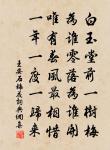 白玉堂前一樹梅
為誰零落為誰開
唯有春風最相惜
一年一度一歸來
王安石梅花詞典網